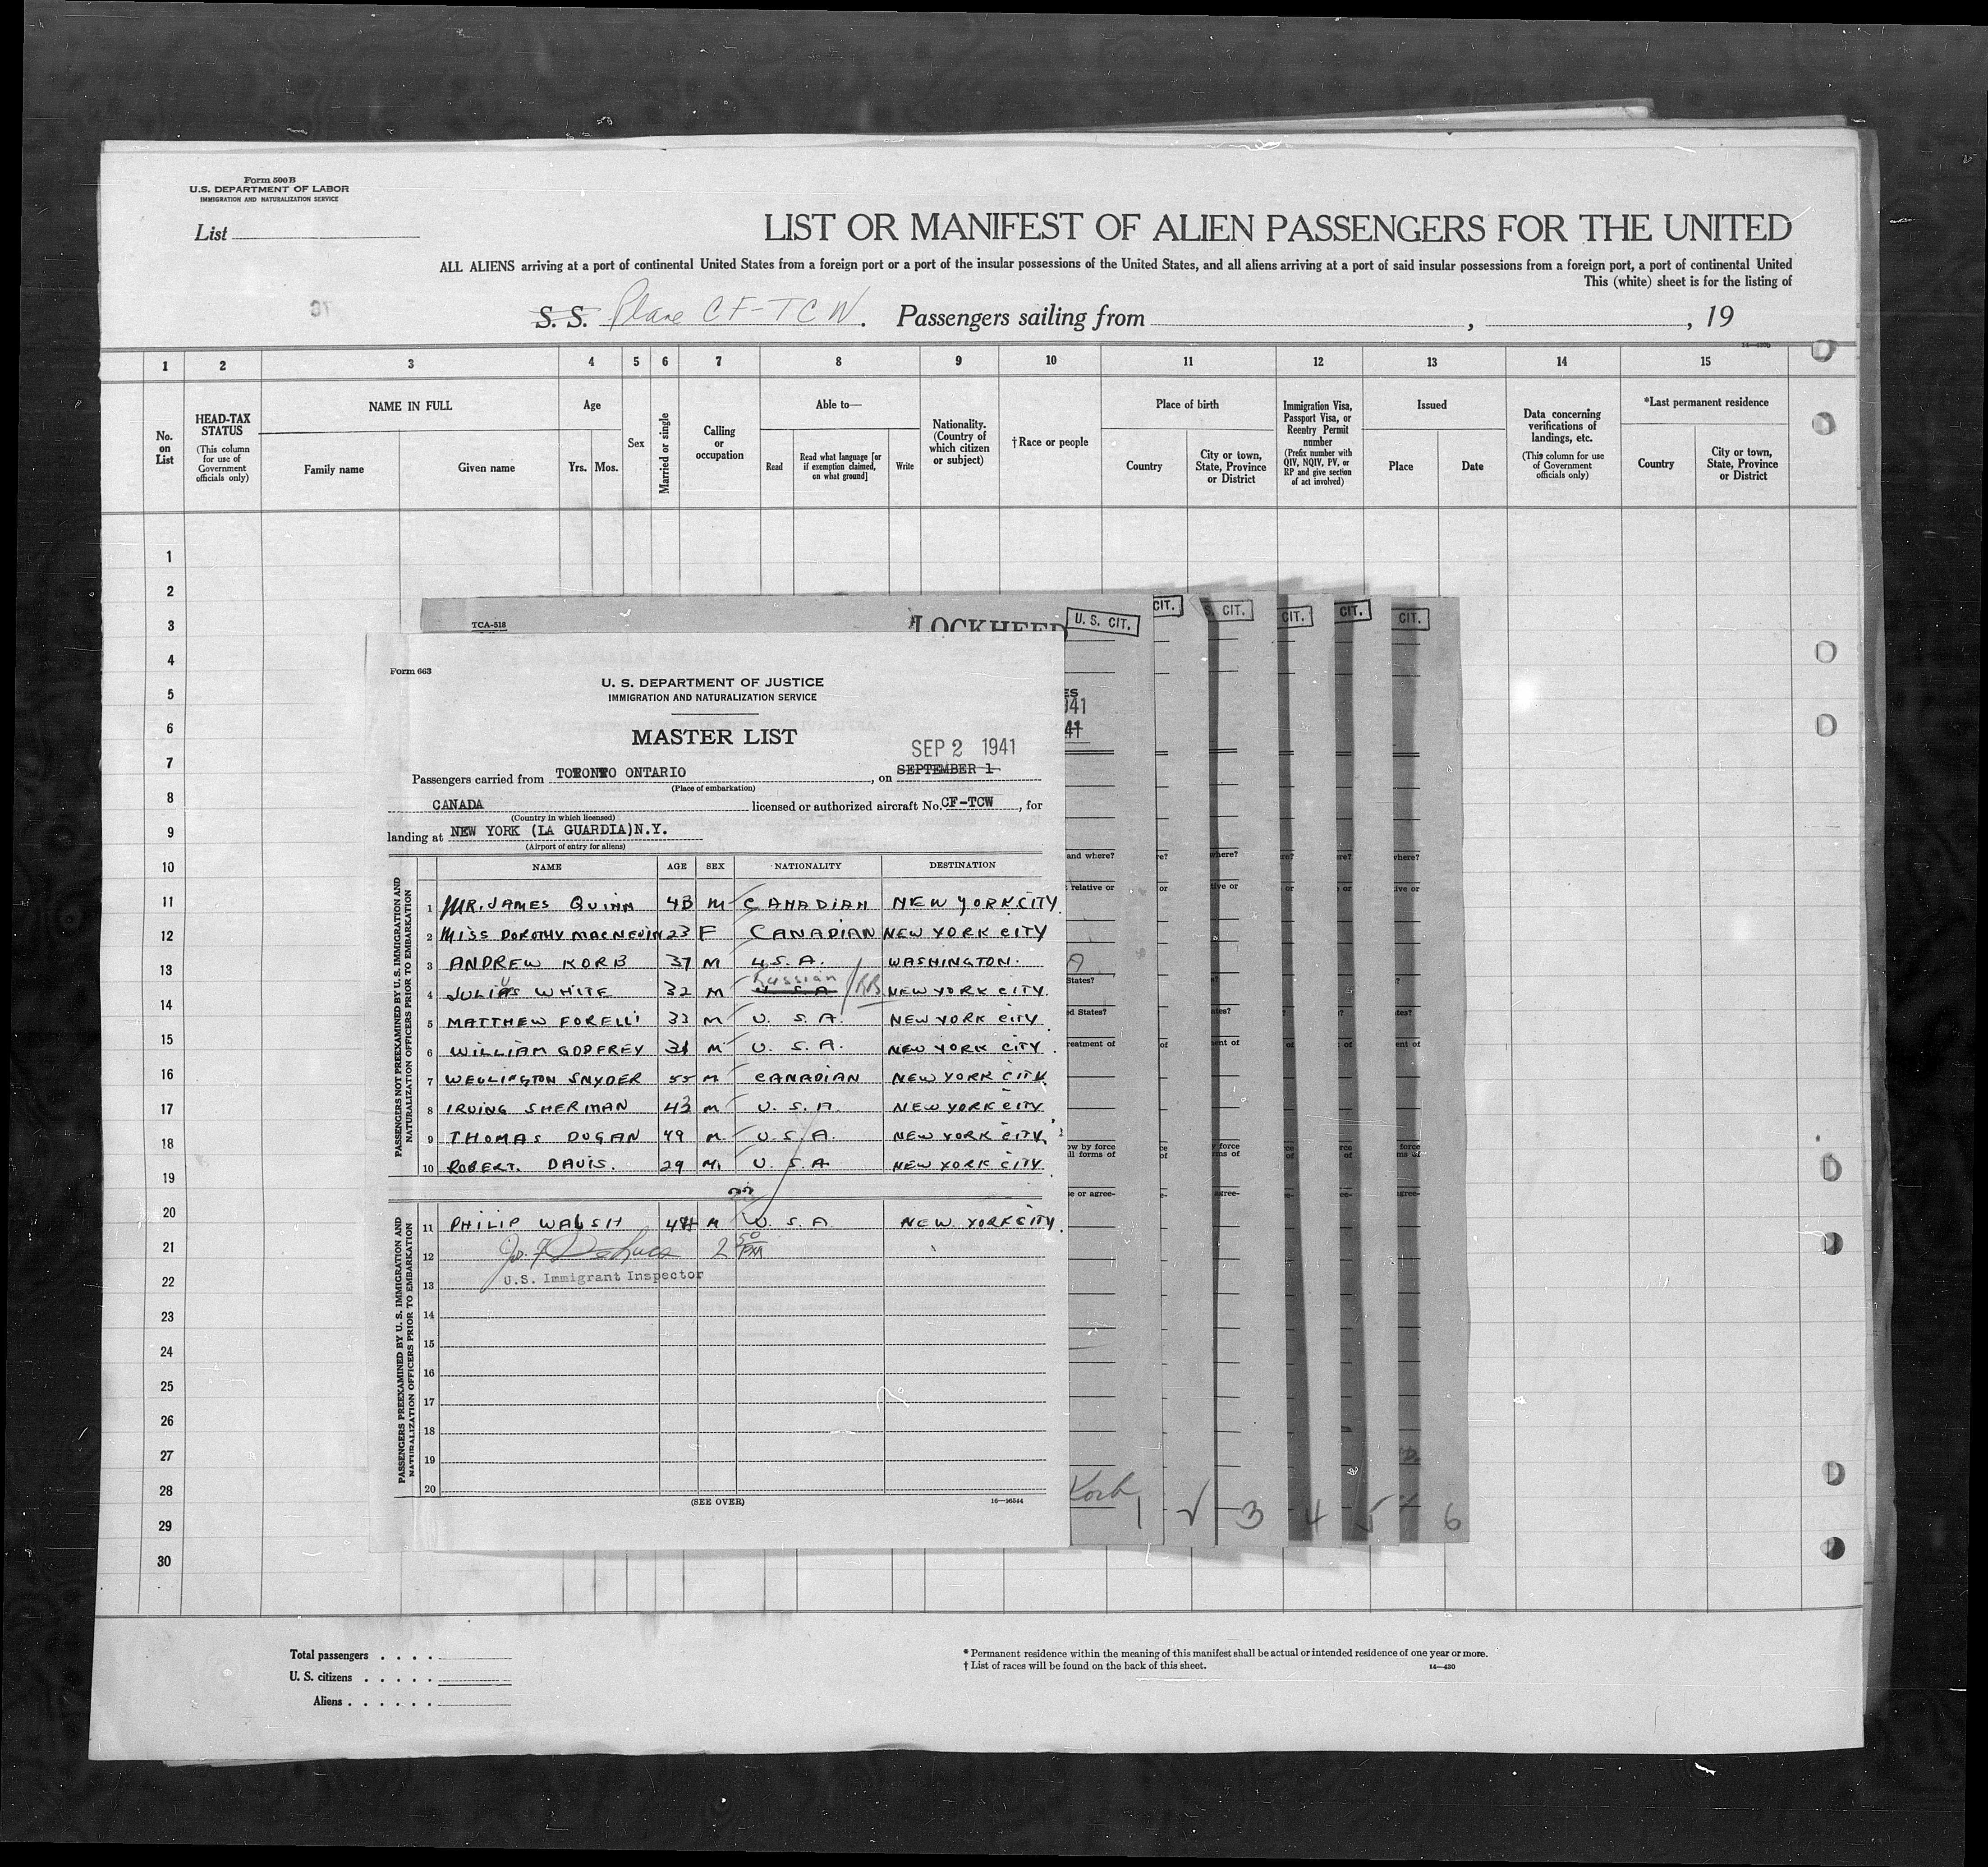 Form 500 B
U.S. DEPARTMENT OF LABOR
IMMIGRATION AND NATURALIZATION SERVICE
List
LIST OR MANIFEST OF ALIEN PASSENGERS FOR THE UNITED
ALL ALIENS arriving at a port of continental United States from a foreign port or a port of the insular possessions of the United States, and all aliens arriving at a port of said insular possessions from a foreign port, a port of continental United
This (white) sheet is for the listing of
S. S. Plane CF-TCW. Passengers sailing from , , 19
1 2 3 4 5 6 7 8 9 10 11 12 13 14 15
No. on List
HEAD-TAX STATUS (This column for use of Government officials only)
NAME IN FULL
Family name Given name
Age
Yrs. Mos.
Sex
Married or single
Calling or occupation
Able to—
Read Read what language [or if exemption claimed, on what ground] Write
Nationality. (Country of which citizen or subject)
†Race or people
Place of birth
Country City or town, State, Province or District
Immigration Visa, Passport Visa, or Reentry Permit number (Prefix number with QIV, NQIV, PV, or RP and give section of act involved)
Issued
Place Date
Data concerning verifications of landings, etc. (This column for use of Government officials only)
*Last permanent residence
Country City or town, State, Province or District
1
2
3
4
5
6
7
8
9
10
11
12
13
14
15
16
17
18
19
20
21
22
23
24
25
26
27
28
29
30
TCA-518
LOCKHEED
U. S. CIT. CIT. S. CIT. CIT. CIT. CIT.
Form 663
U. S. DEPARTMENT OF JUSTICE
IMMIGRATION AND NATURALIZATION SERVICE
MASTER LIST
SEP 2 1941
Passengers carried from TORONTO ONTARIO , on SEPTEMBER 1
(Place of embarkation)
CANADA licensed or authorized aircraft No. CF-TCW , for
(Country in which licensed)
landing at NEW YORK (LA GUARDIA)N.Y.
(Airport of entry for aliens)
NAME AGE SEX NATIONALITY DESTINATION
PASSENGERS NOT PREEXAMINED BY U. S. IMMIGRATION AND NATURALIZATION OFFICERS PRIOR TO EMBARKATION
1 MR. JAMES QUINN 43 M CANADIAN NEW YORK CITY.
2 MISS DOROTHY MACNEVIN 23 F CANADIAN NEW YORK CITY
3 ANDREW KORB 37 M U.S.A. WASHINGTON.
Russian
4 JULIUS WHITE 32 M U S A / RB NEW YORK CITY.
5 MATTHEW FORELLI 33 M U. S. A. NEW YORK CITY.
6 WILLIAM GODFREY 31 M U. S. A. NEW YORK CITY.
7 WELLINGTON SNYDER 55 M CANADIAN NEW YORK CITY.
8 IRVING SHERMAN 43 M U. S. A. NEW YORK CITY.
9 THOMAS DUGAN 49 M. U. S. A. NEW YORK CITY.
10 ROBERT. DAVIS. 29 M. U. S. A NEW YORK CITY.
PASSENGERS PREEXAMINED BY U. S. IMMIGRATION AND NATURALIZATION OFFICERS PRIOR TO EMBARKATION
11 PHILIP WALSH 44 M U. S. A NEW YORK CITY.
12 2 50 PM
13 U.S. Immigrant Inspector
14
15
16
17
18
19
20
(SEE OVER) 16—16544
and where?
relative or
States?
ed States?
reatment of
ow by force
all forms of
e or agree-
Korb 1 3 4 5 6
Total passengers . . . .
U. S. citizens . . . . .
Aliens . . . . . .
* Permanent residence within the meaning of this manifest shall be actual or intended residence of one year or more.
† List of races will be found on the back of this sheet. 14—430